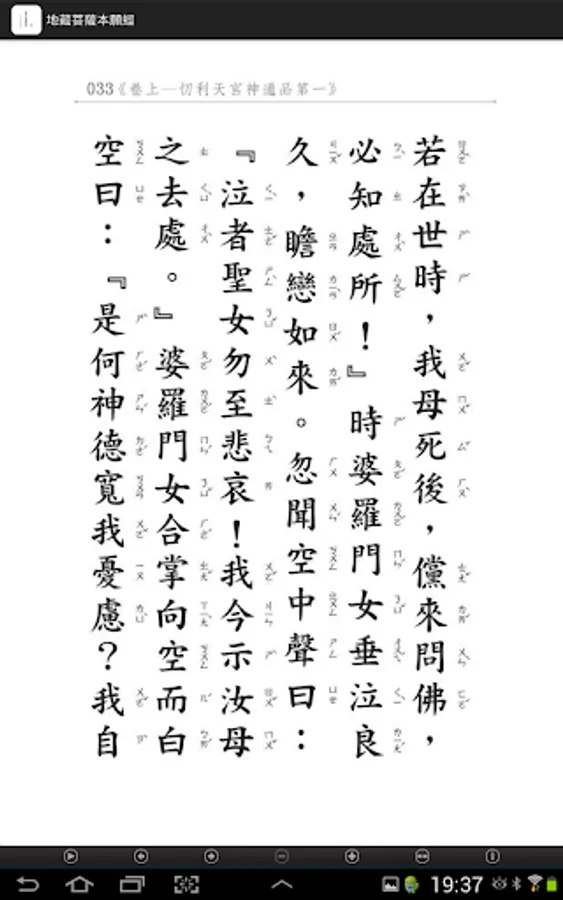 地藏菩薩本願經
033《卷上─忉利天宮神通品第一》
若在世時，我母死後，儻來問佛，
必知處所！』時婆羅門女垂泣良
久，瞻戀如來。忽聞空中聲曰：
『泣者聖女勿至悲哀！我今示汝母
之去處。』婆羅門女合掌向空而白
空曰：『是何神德寬我憂慮？我自
19:37